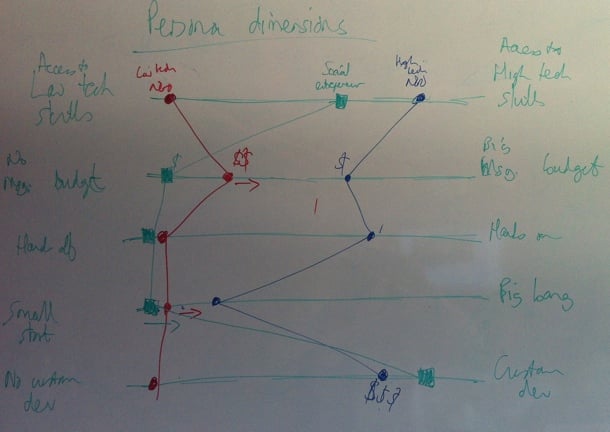 Persona dimensions
Access to
Low tech
skills
Low tech
NGO
Social
entrepreneur
High
tech
NGO
Access to
High tech
skills
No
budget
$
$$
$
Big
budget
Hand off
Hands on
Small
start
Big bang
No custom
dev
$$$
Custom
dev